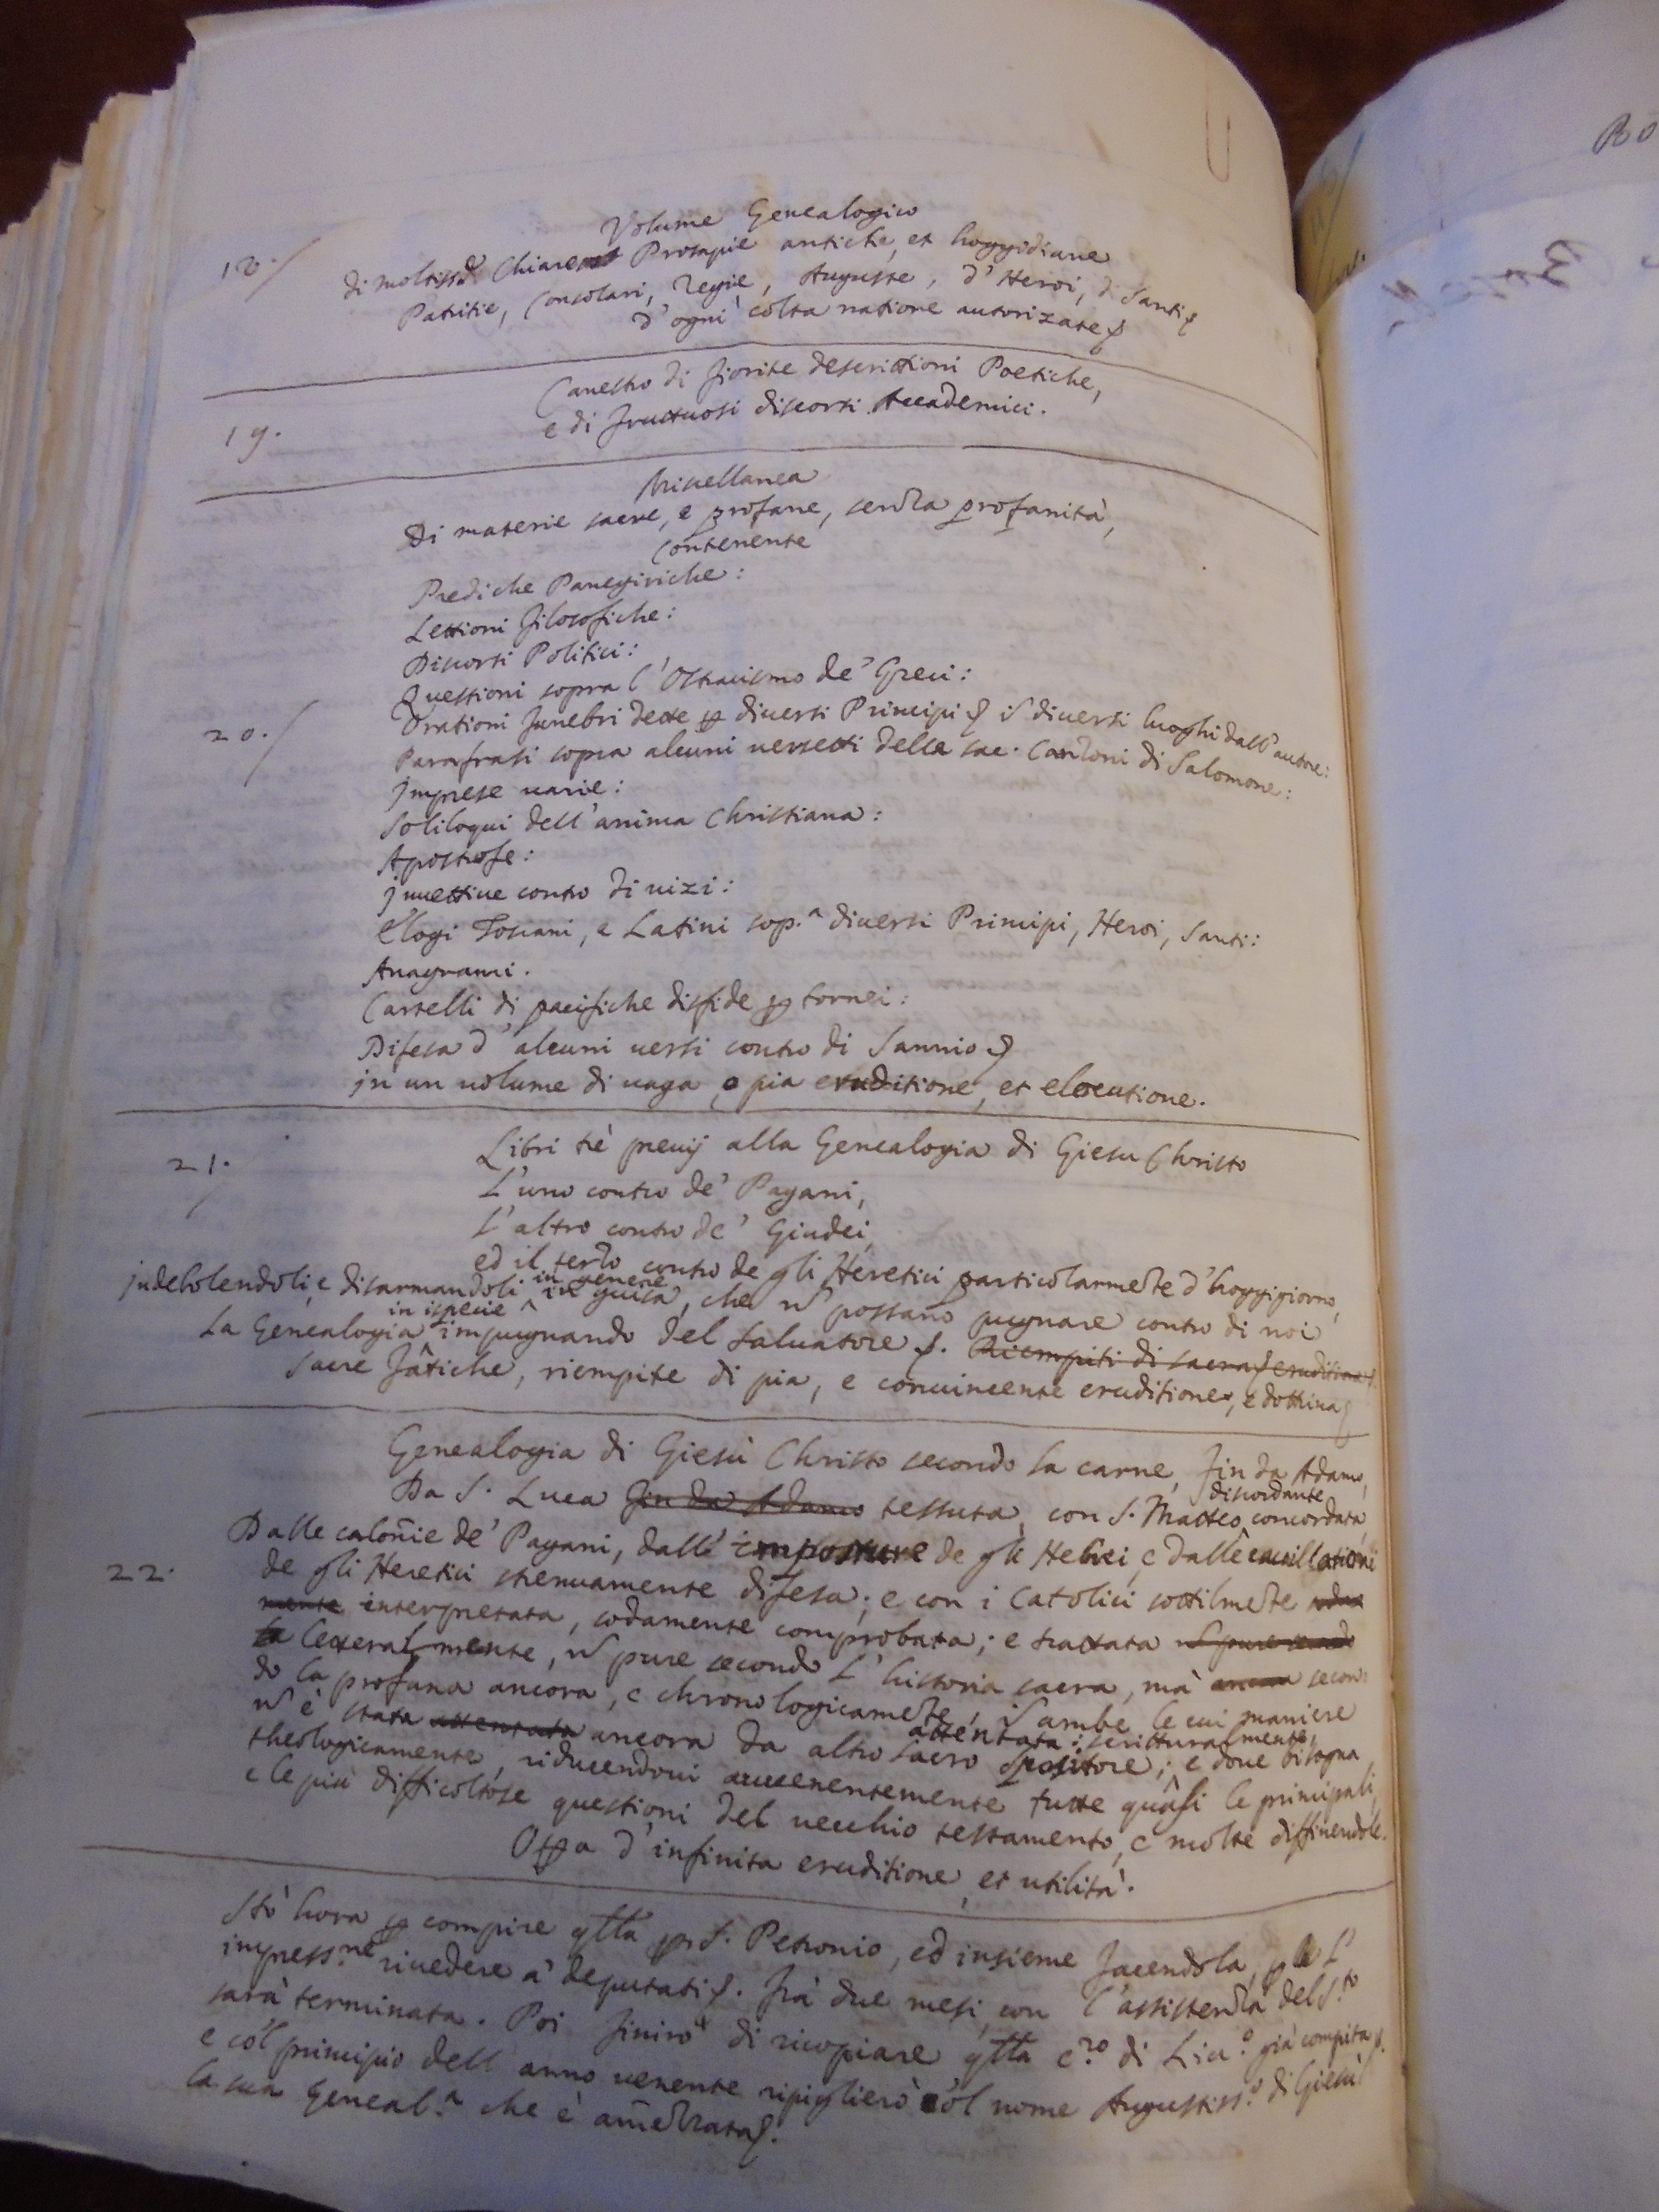 Volume Genealogico
18. di moltiss.e Chiare Prosapie antiche, et hoggidiane
Patritie, Consolari, Regie, Auguste, d' Heroi, di Santi
d' ogni colta natione autorizate
Canestro di fiorite descrittioni Poetiche,
19. e di fruttuosi discorsi Academici.
Miscellanea
Di materie sacre, e profane, senza profanità,
Contenente
Prediche Panegiriche:
Lettioni filosofiche:
Discorsi Politici:
Questioni sopra l' Ostracismo de' Greci:
20. Orationi funebri dette diversi Principi diuersi luoghi dall' autore:
Parafrasi sopra alcuni versetti della sac. Canzoni di Salomone:
Imprese uarie:
Soliloqui dell' anima Christiana:
Apostrofe:
Inuettiue contro di uizi:
Elogi Toscani, e Latini sop.a diuersi Principi, Heroi, Santi:
Anagrami.
Cartelli di pacifiche disfide tornei:
Difesa d' alcuni uersi contro di Sannio
in un uolume di uaga, e pia eruditione, et elocutione.
21. Libri tè preuij alla Genealogia di Giesu Christo
L' uno contro de' Pagani,
L' altro contro de' Giudei,
ed il terzo contro de gli Heretici particolarmete d' hoggigiorno,
indebolendoli, e disarmandoli in genere in guisa, che possano pugnare contro di noi
La Genealogia in ispecie impugnando del Saluatore. Riempiti di sacra eruditione
sacre fatiche, riempite di pia, e conuincente eruditione, e dottrina
Genealogia di Giesù Christo secondo la carne, fin da Adamo,
Da S. Luca fin da Adamo tessuta, con S. Matteo discordante concordata,
Dalle calonie de' Pagani, dall' imposture de gli Hebrei, e dalle cauillationi
22. de gli Heretici strenuamente difesa; e con i Catolici sottilmete
mente interpretata, sodamente comprobata; e trattata
la letteralmente, pure secondo l' historia sacra, mà ancora secon
do la profana ancora, e chronologicamete, ambe le cui maniere
è stata attentata ancora da altro sacro Spositore attentata; scritturalmente,
theologicamente, riducendoui auuenentemente tutte quasi le principali, e doue bisogna
e le più difficoltose questioni del uecchio testamento, e molte diffinendole.
Opa d' infinita eruditione, et utilità.
Stò hora compire S. Petronio, ed insieme facendola,
impress.ne riuedere a' deputati. Frà due mesi, con l' assistenza del S.to
sarà terminata. Poi finirò di ricopiare di già compita
e col principio dell' anno uenente ripiglierò col nome Augustiss.o di Giesù
la sua Geneal.a che è amezzata.
Bo